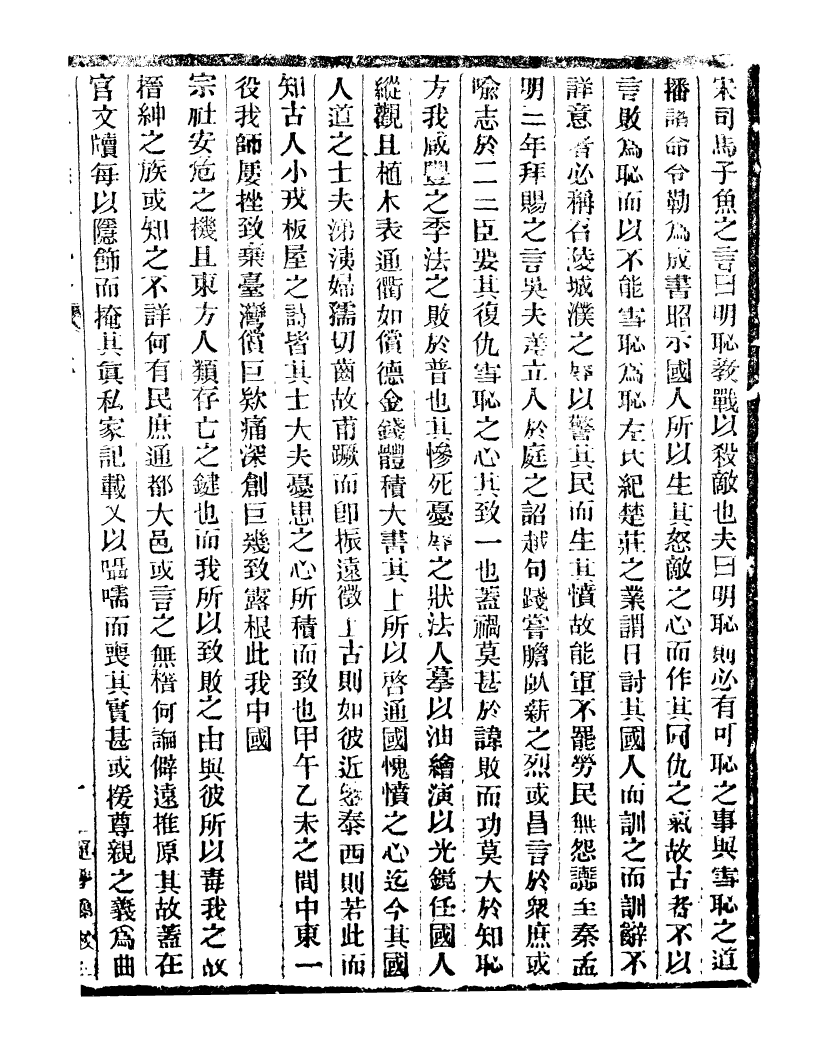 宋司馬子魚之言曰明恥敎戰以殺敵也夫曰明恥則必有可恥之事與雪恥之道
播誥命令勒為成書昭示國人所以生其怒敵之心而作其同仇之氣故古者不以
言敗為恥而以不能雪恥為恥左氏紀楚莊之業謂日討其國人而訓之而訓辭不
詳意者必稱召陵城濮之辱以警其民而生其憤故能軍不罷勞民無怨讟至秦孟
明二年拜賜之言吳夫差立人於庭之詔越句踐嘗膽臥薪之烈或昌言於衆庶或
喩志於一二臣要其復仇雪恥之心其致一也蓋禍莫甚於諱敗而功莫大於知恥
方我咸豐之季法之敗於普也其慘死憂辱之狀法人摹以油繪演以光鏡任國人
縱觀且植木表通衢如償德金錢體積大書其上所以啓通國愧憤之心迄今其國
人道之士夫涕洟婦孺切齒故甫蹶而卽振遠徵上古則如彼近鑒泰西則若此而
知古人小戎板屋之詩皆其士大夫憂思之心所積而致也甲午乙未之間中東一
役我師屢挫致棄臺灣償巨欵痛深創巨幾致露根此我中國
宗社安危之機且東方人類存亡之鍵也而我所以致敗之由與彼所以毒我之故
搢紳之族或知之不詳何有民庶通都大邑或言之無稽何論僻遠推原其故蓋在
官文牘每以隱飾而掩其眞私家記載又以囁嚅而喪其實甚或援尊親之義爲曲